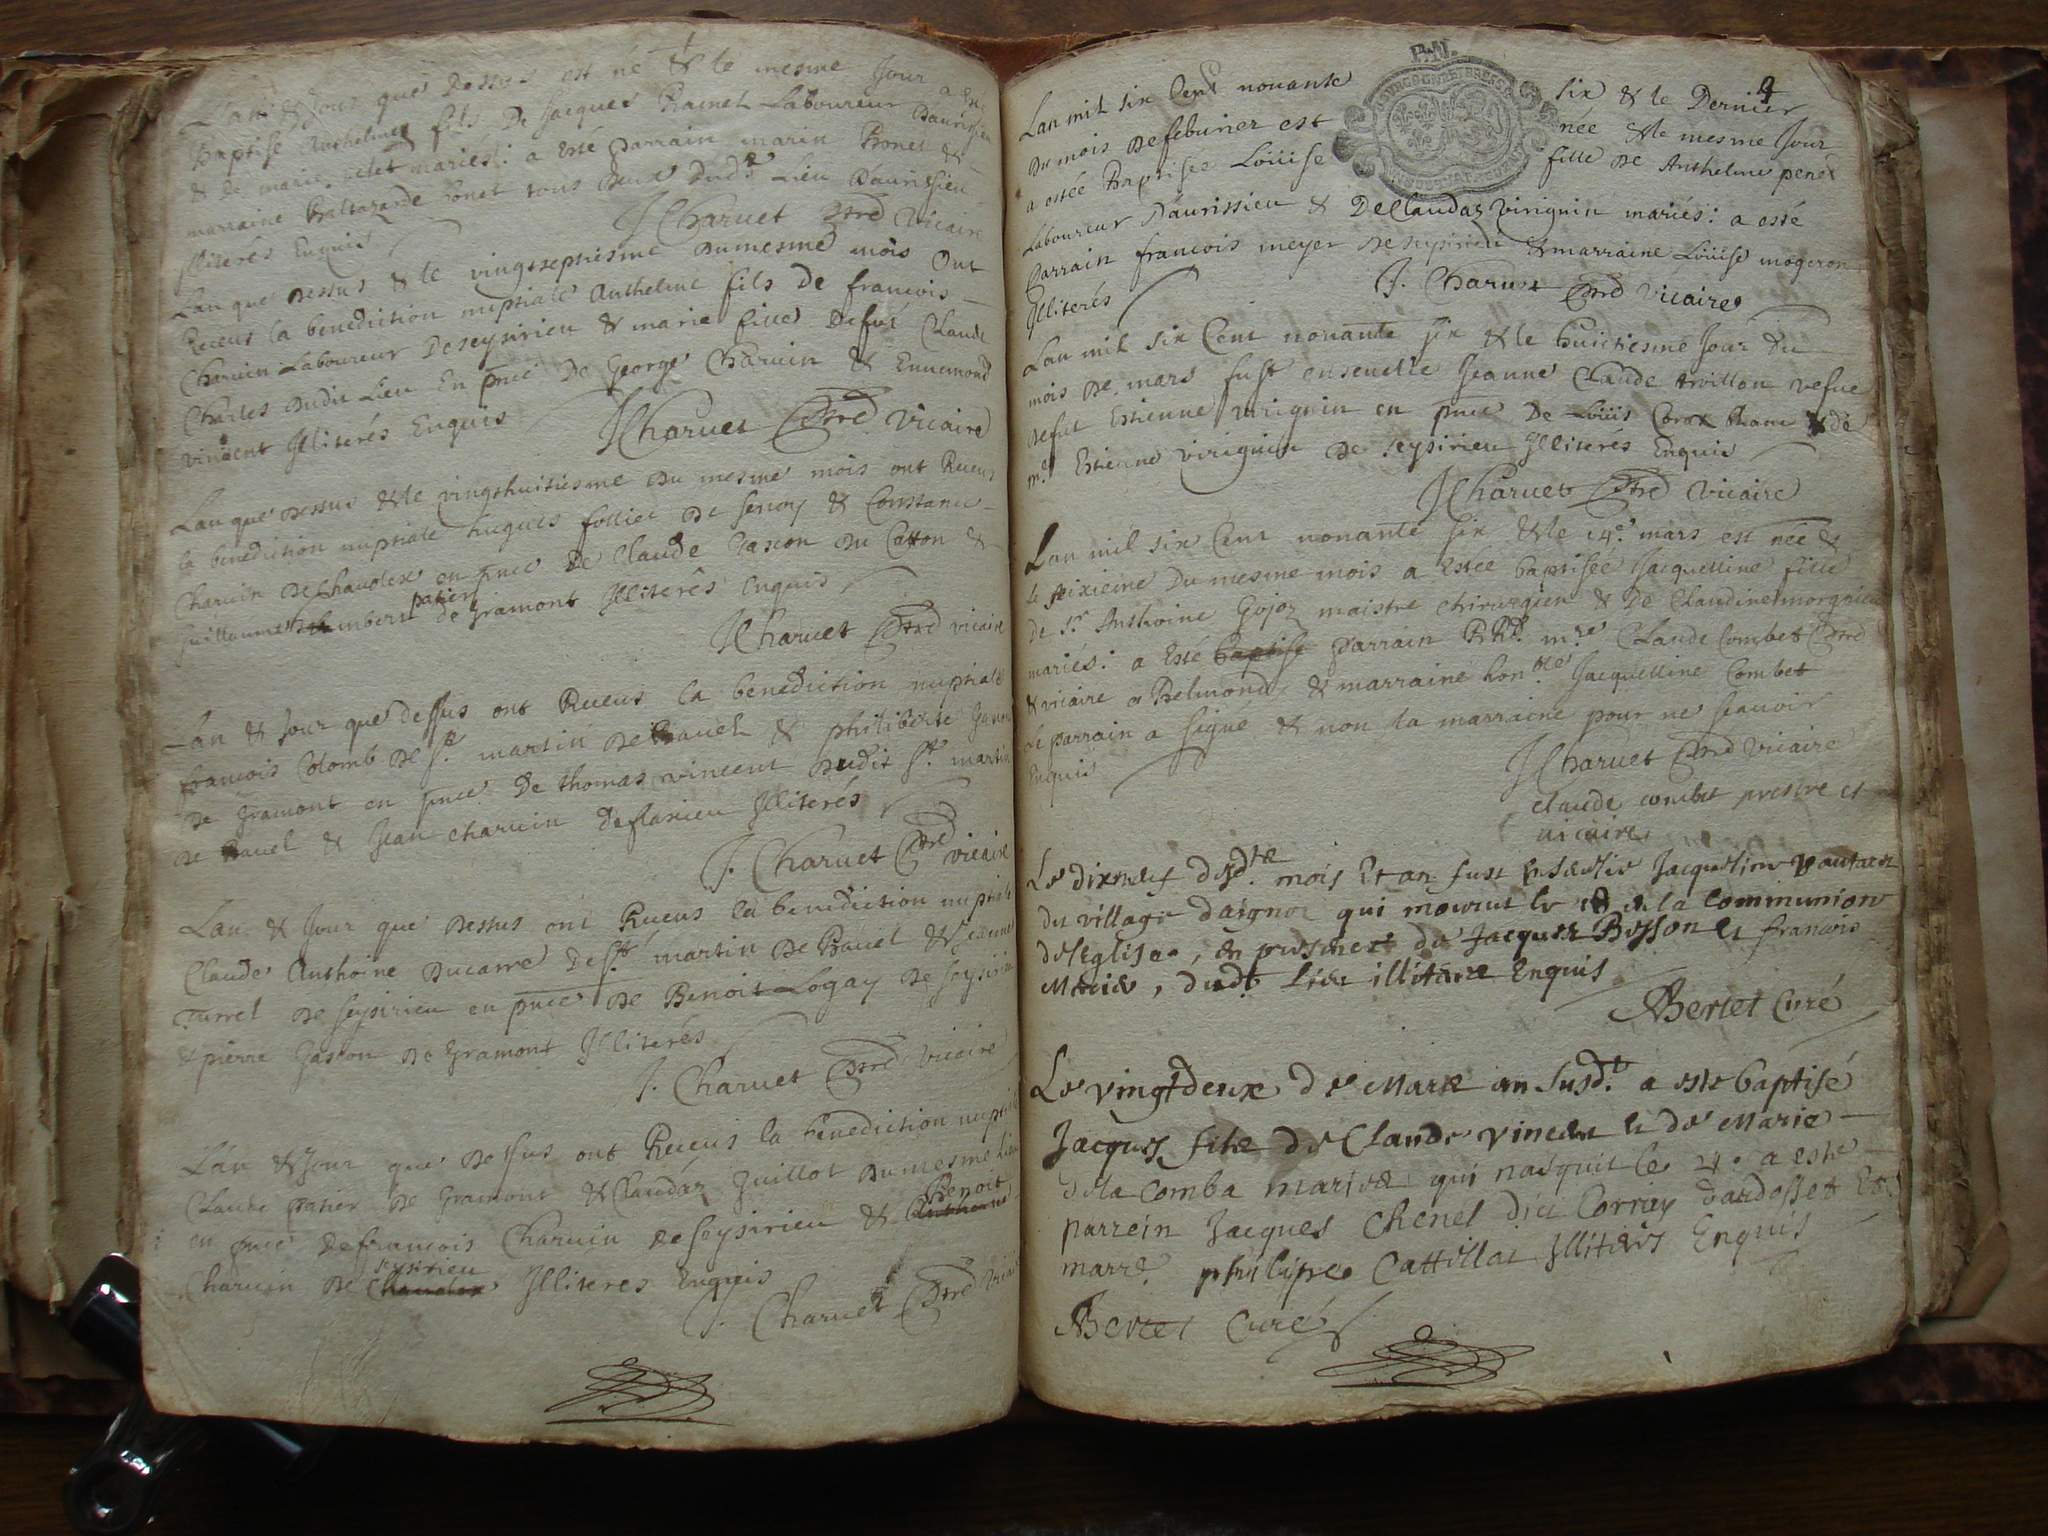 Lan & Jour que dessus est né & le mesme Jour a esté
Baptisé Anthelme fils de Jacques Laboureur Daurissieu
& de marie mariés: a esté parrain marin Bonet &
marraine Baltazarde bonet tous deux dudt Lieu Daurissieu
Illiterés Enquis
J Charuet ptre vicaire
Lan que dessus & le vingtseptiesme du mesme mois Ont
Receus la benediction nuptiale Anthelme fils de francois
Charuin Laboureur de seysirieu & marie fille defut Claude
Charles dudit Lieu En pnce de George Charuin & Ennemond
vincent Illiterés Enquis
J Charuet ptre vicaire
Lan que dessus & le vingthuitiesme du mesme mois ont Receus
la benediction nuptiale hugues follies de & Constance
Charuin de Chauolex en pnce de Claude gascon du Catton &
patier
guillaume humbert de gramont Illiterés Enquis
J Charuet ptre vicaire
Lan & Jour que dessus ont Receus la benediction nuptiale
francois Colomb de st martin de Bauel & philiberte
de gramont en pnce de thomas vincent dudit st martin
de Bauel & Jean charuin deflarieu Illiterés
J. Charuet ptre vicaire
Lan & Jour que dessus ont Receus la benediction nuptiale
Claude Anthoine ducarre de st martin de Bauel & Jeanne
Turrel de seysirieu en pnce de Benoit Logay de seysirieu
& pierre gascon de gramont Illiterés
J. Charuet ptre vicaire
Lan & Jour que dessus ont Receus la benediction nuptiale
Claude patier de gramont & Claudaz guillot du mesme Lieu
Benoit
en pnce de francois Charuin de seysirieu & Anthelme
seysirieu
Charuin de Chauolex Illiteres Enquis
J. Charuet ptre vicaire
Lan mil six Cent nonante six & le Dernier
du mois de feburier est née & le mesme Jour
a estée Baptisée Loüise fille de Anthelme penet
Laboureur Daurissieu & de Claudaz viriguin mariés: a esté
parrain francois meyer de seysirieu & marraine Loüise mogeron
Illiterés
J. Charuet ptre vicaire
Lan mil six Cent nonante six & le huictiesme Jour du
mois de mars fust enseuelie Jeanne Claude trvillon vefue
defut Estienne viriguin en pnce de Loüis & de
me Estienne viriguin de seysirieu Illiterés Enquis
J Charuet ptre vicaire
Lan mil six Cent nonante six & le 14e mars est née &
le sixieme du mesme mois a estée baptisée Jacquelline fille
de sr Anthoine Gojoz maistre chirurgien & de Claudine
mariés: a esté baptise parrain Rd mre Claude Combet ptre
& vicaire a Belmond & marraine honble Jacquelline Combet
Le parrain a signé & non la marraine pour ne scauoir
Enquis
J Charuet ptre vicaire
claude combet prestre et
uicaire
Le dixneuf dusdt mois Et an fust enseuelie Jacquelline
du village daignoz qui mourut le de la communion
de l'Eglise, en presence de Jacques Bosson et francois
dudt Lieu illiteres Enquis
Bertet Curé
Le vingtdeux de Mars an susdt a este baptisé
Jacques fils de Claude vincent et de Marie
dela Comba mariés qui nasquit le 4. a este
parrein Jacques Chenel dict Corriez dardosset Et
marre philippe Cattillat Illiterés Enquis
Bertet Curé